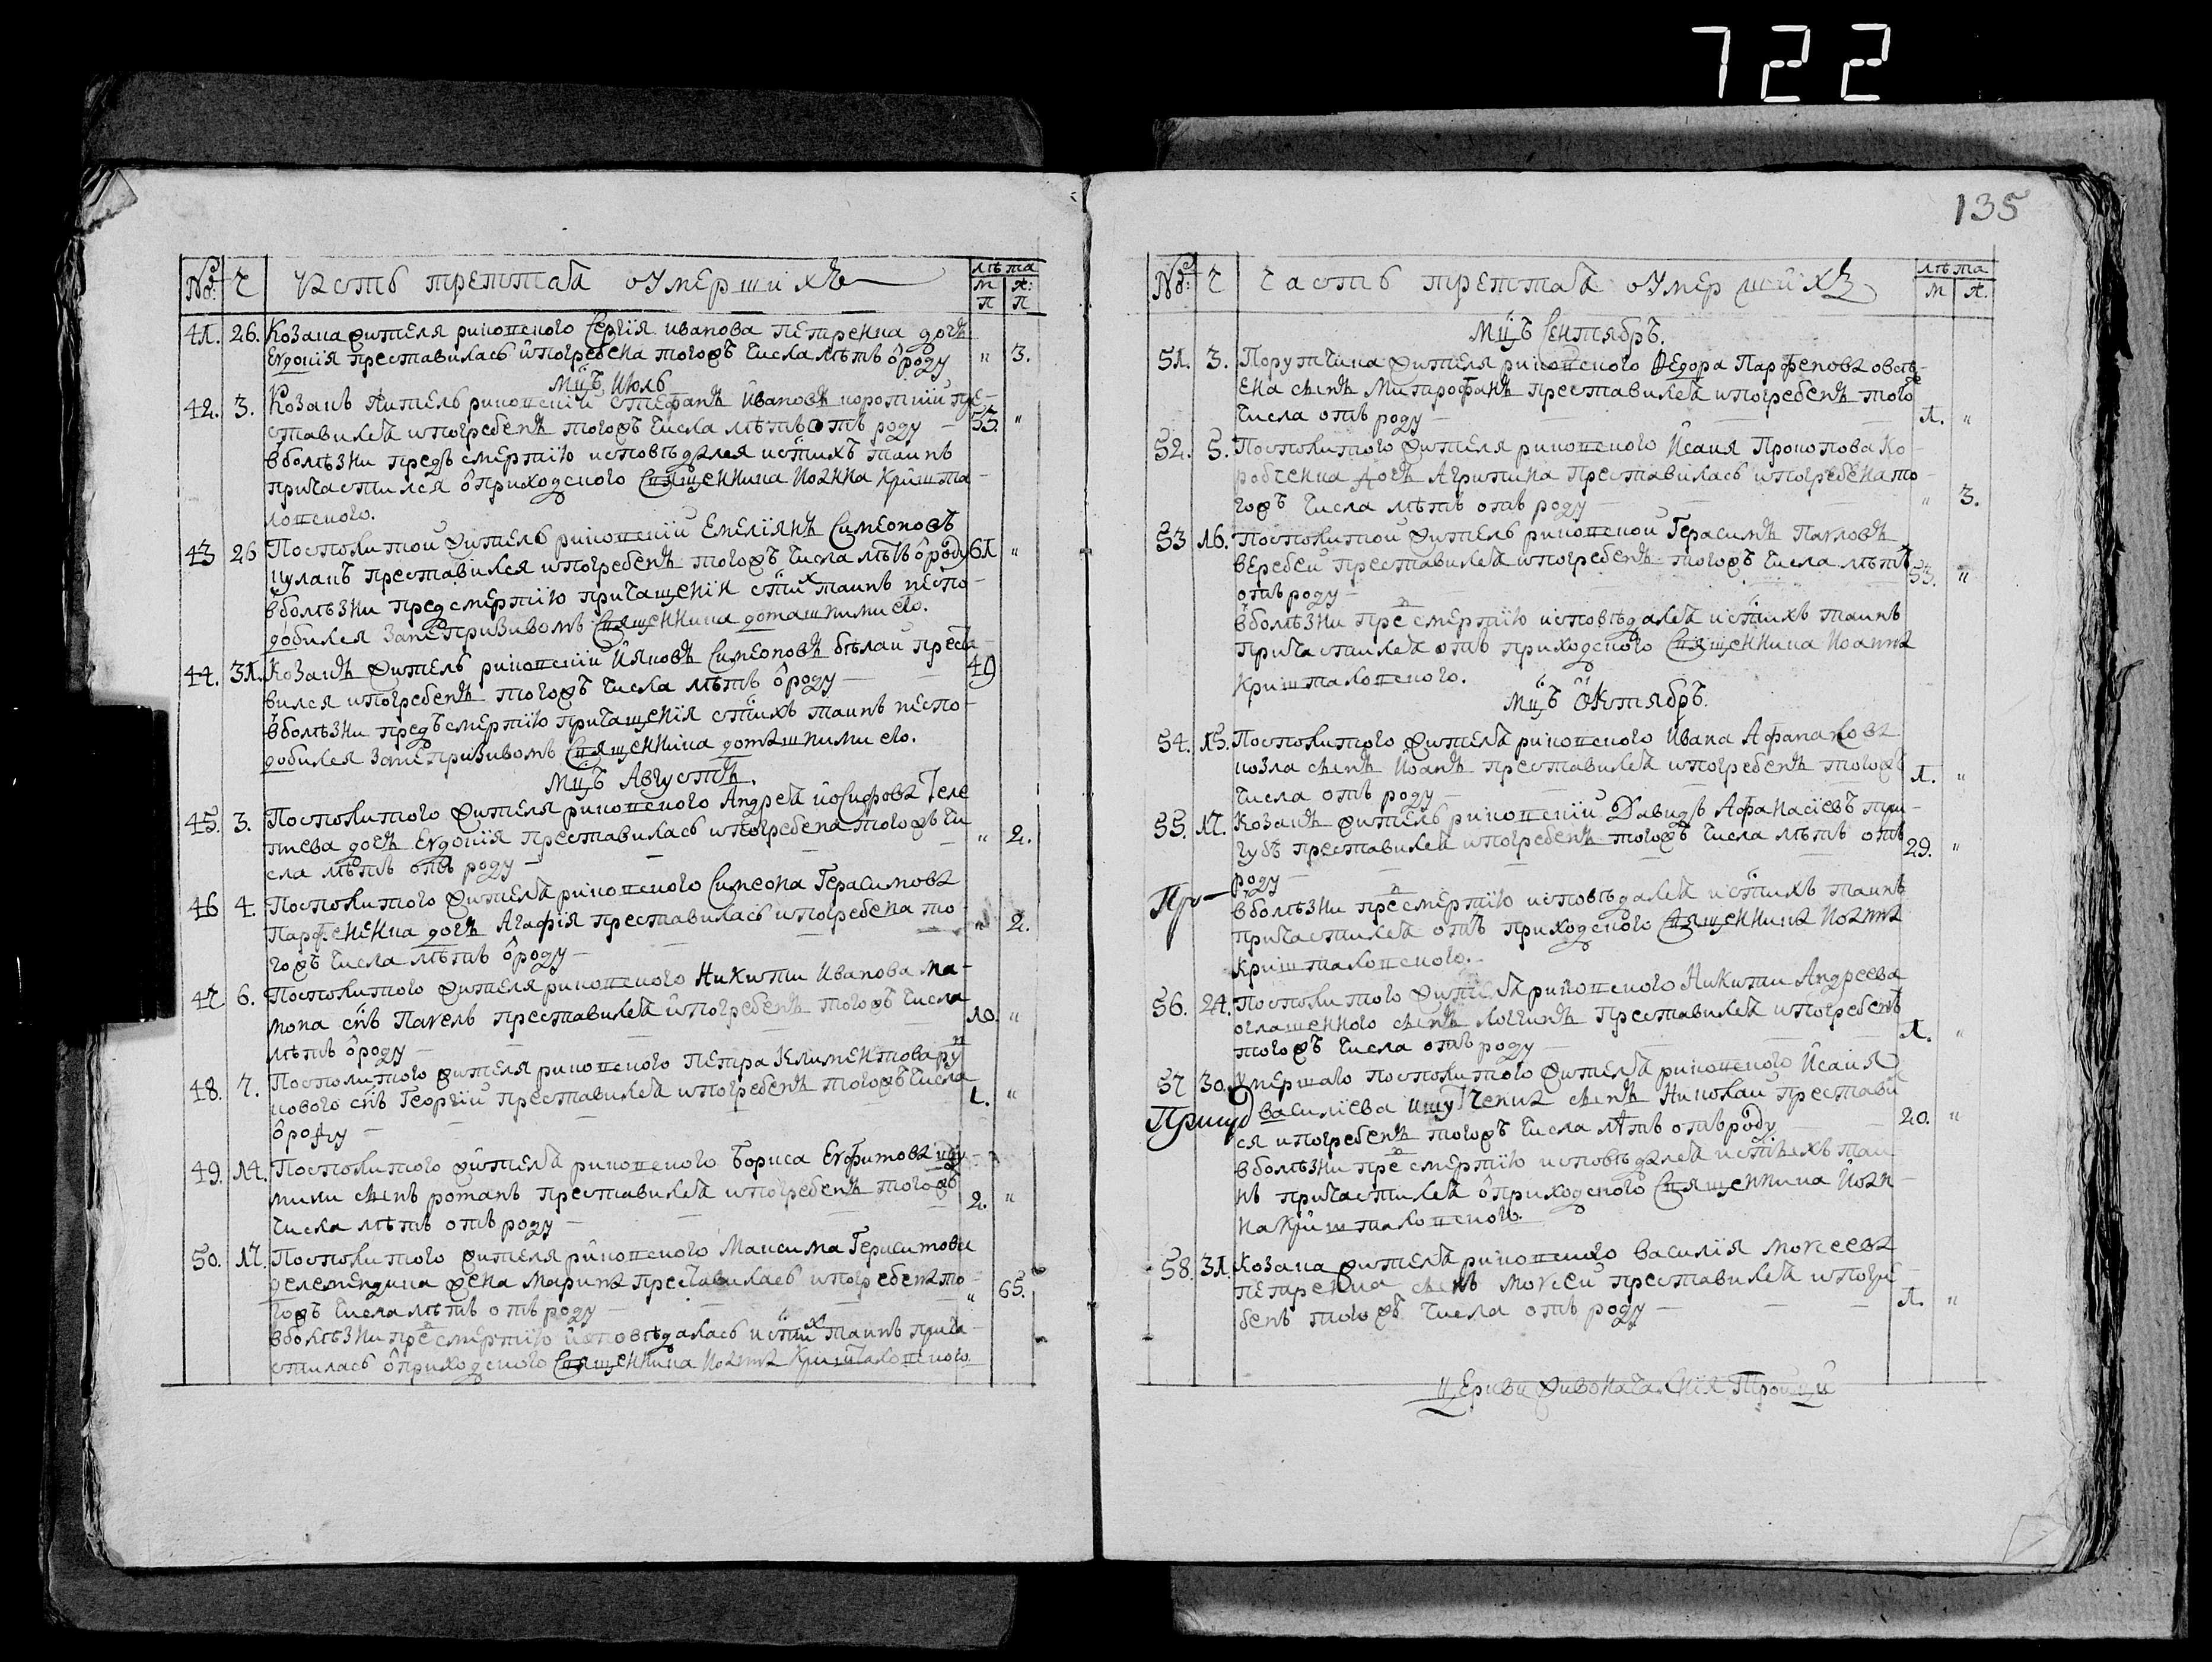 722
135
№: Ч Часть треттая оумершихъ лѣта
М Ж:
П П
41. 26. Козака жителя риковского Сергія иванова петренка дочъ
Евдокія преставилась и погребена тогожъ числа лѣтъ ѿ роду " 3.
Мцъ Июль
42. 3. Козакъ житель риковскій Стефанъ Ивановъ короткій пре-
ставился и погребенъ тогожъ числа лѣтъ отъ роду 53. "
в болѣзни предъ смертію исповѣдался и стихъ таинъ
причастился ѿ приходского Священника Иоанна Кришта-
ловского.
43 26 Посполитой житель риковскій Емеліянъ Симеоновъ
кулакъ преставился и погребенъ тогожъ числа лѣтъ ѿ роду 61 "
в болѣзни пред смертію причащенія стих таинъ неспо-
добился за непризивомъ Священника домашними его.
44. 31. Козакъ житель риковскій Яковъ Симеоновъ бѣлай преста-
вился и погребенъ тогожъ числа лѣтъ ѿ роду 49
в болѣзни предъ смертію причащенія стихъ таинъ неспо-
добился за непризивомъ Священника домашними его.
Мцъ Августъ.
45. 3. Посполитого жителя риковского Андрея иосифова Теле
тнева дочъ Евдокія преставилась и погребена тогожъ чи
сла лѣтъ отъ роду " 2.
46 4. Посполитого жителя риковского Симеона Герасимова
Парфененка дочъ Агафія преставилась и погребена то-
гожъ числа лѣтъ ѿ роду " 2.
47 6. Посполитого жителя риковского Никити Иванова ма-
мона снъ Павелъ преставился и погребенъ тогожъ числа
лѣтъ ѿ роду 10. "
48. 7. Посполитого жителя риковского петра Климентова ру
кового снъ Георгій преставился и погребенъ тогожъ числа
ѿ роду 1. "
49. 14. Посполитого жителя риковского Бориса Евфимова
сынъ романъ преставился и погребенъ тогожъ
числа лѣтъ отъ роду 2. "
50. 17. Посполитого жителя риковского Максима Герасимова
желемендика жена Марина преставилась и погребена то-
гожъ числа лѣтъ отъ роду " 65.
в болѣзни пре смертію исповѣдалась и стих таинъ прича-
стилась ѿ приходского Священника Иоанна Кришталовского
№: Ч Часть треттая оумершихъ лѣта
М Ж.
Мцъ Сентябръ.
51. 3. Порутчика жителя риковского Федора Парфенова овсѣ-
ена сынъ Митрофанъ преставился и погребенъ того
числа отъ роду 1. "
52. 5. Посполитого жителя риковского Исаия Прокопова Ко-
робченка дочъ Агрипина преставилась и погребена то-
гожъ числа лѣтъ отъ роду " 3.
53 16. Посполитой житель риковской Герасимъ Павловъ
веребей преставился и погребенъ тогожъ числа лѣтъ 53. "
отъ роду
в болѣзни пре смертію исповѣдался и стихъ таинъ
причастился отъ приходского Священника Иоанна
Кришталовского.
Мцъ Октябръ.
54. 15. Посполитого жителя риковского Ивана Афанасова
козла сынъ Иоанъ преставился и погребенъ тогожъ
числа отъ роду 1. "
55. 17. Козакъ житель риковскій Давидъ Афанасіевъ при-
губъ преставился и погребенъ тогожъ числа лѣтъ отъ 29. "
роду
При
в болѣзни пре смертію исповѣдался и стихъ таинъ
причастился отъ приходского Священника Иоанна
Кришталовского.
56. 24. Посполитого жителя риковского Никити Андреева
оглашенного сынъ логгинъ преставился и погребенъ
тогожъ числа отъ роду 1. "
57 30. Умершаго посполитого жителя риковского Исаия
василіева сынъ Николай престави
ся и погребенъ тогожъ числа лѣтъ отъ роду 20. "
в болѣзни пре смертію исповѣдался и стыхъ таи
нъ причастился ѿ приходского Священника Иоан-
на Кришталовского.
58. 31. Козака жителя риковского василія мовсеева
петренка сынъ мовсей преставился и погре
бенъ тогожъ числа отъ роду 1. "
Церкви живоначалнія Тройци